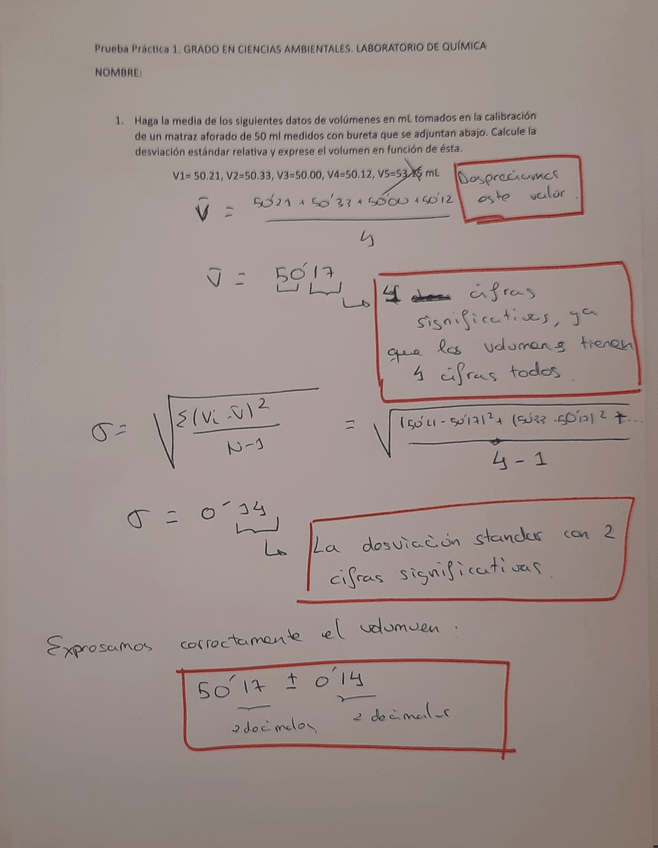 Prueba Práctica 1. GRADO EN CIENCIAS AMBIENTALES. LABORATORIO DE QUÍMICA
NOMBRE:
1. Haga la media de los siguientes datos de volúmenes en mL tomados en la calibración
de un matraz aforado de 50 ml medidos con bureta que se adjuntan abajo. Calcule la
desviación estándar relativa y exprese el volumen en función de ésta.
V1= 50.21, V2=50.33, V3=50.00, V4=50.12, V5=53. mL
Despreciamos
este valor.
V̄ = 50'21 + 50'33 + 50'00 + 50'12
4
V̄ = 50'17
4 cifras
significativas, ya
que los volumenes tienen
4 cifras todos.
σ = √ Σ(Vi - V̄)² / N-1 = √ (50'21 - 50'17)² + (50'33 - 50'17)² + ... / 4 - 1
σ = 0'14
La desviación standar con 2
cifras significativas.
Expresamos correctamente el volumen :
50'17 ± 0'14
2 decimales 2 decimales